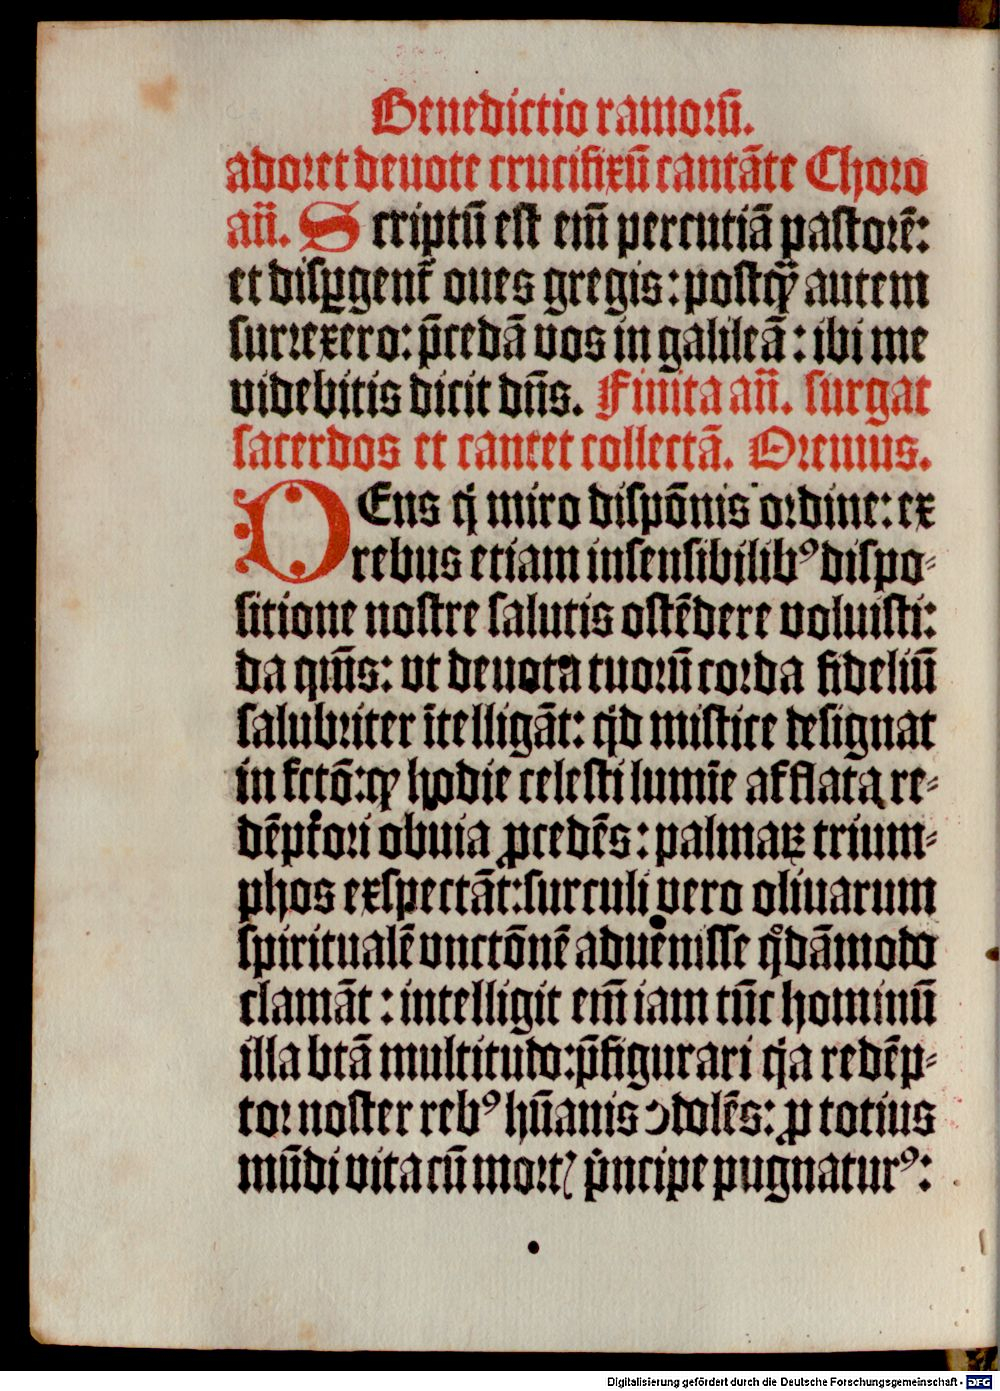 Benedictio ramoꝝ̄.
adoret deuote crucifixū cantāte Choro
an̄. Scriptū est em̄ percutiā pastorē:
et disꝑgent᷑ oues gregis: postqꝫ autem
surrexero: p̄cedā vos in galileā: ibi me
videbitis dicit dn̄s. Finita an̄. surgat
sacerdos et cantet collectā. Oremus.
DEus q̇ miro dispōnis ordine: ex
rebus etiam insensibilibꝰ dispo⸗
sitione nostre salutis ostēdere voluisti:
da qm̄s: ut deuota tuorū corda fideliū
salubriter ītelligāt: qd mistice designat
in fctō: qꝫ hodie celesti lumīe afflata re⸗
dēptori obuia ꝓcedēs: palmaꝝ trium⸗
phos exspectāt: surculi vero oliuarum
spiritualē vnctōnē aduenisse qͦdāmodo
clamāt: intelligit em̄ iam tūc hominū
illa btā multitudo: p̄figurari qa redēp⸗
tor noster rebꝰ hūanis ꝯdolēs: ꝓ totius
mūdi vita cū mortꝭ pͥncipe pugnaturꝰ:
Digitalisierung gefördert durch die Deutsche Forschungsgemeinschaft - DFG